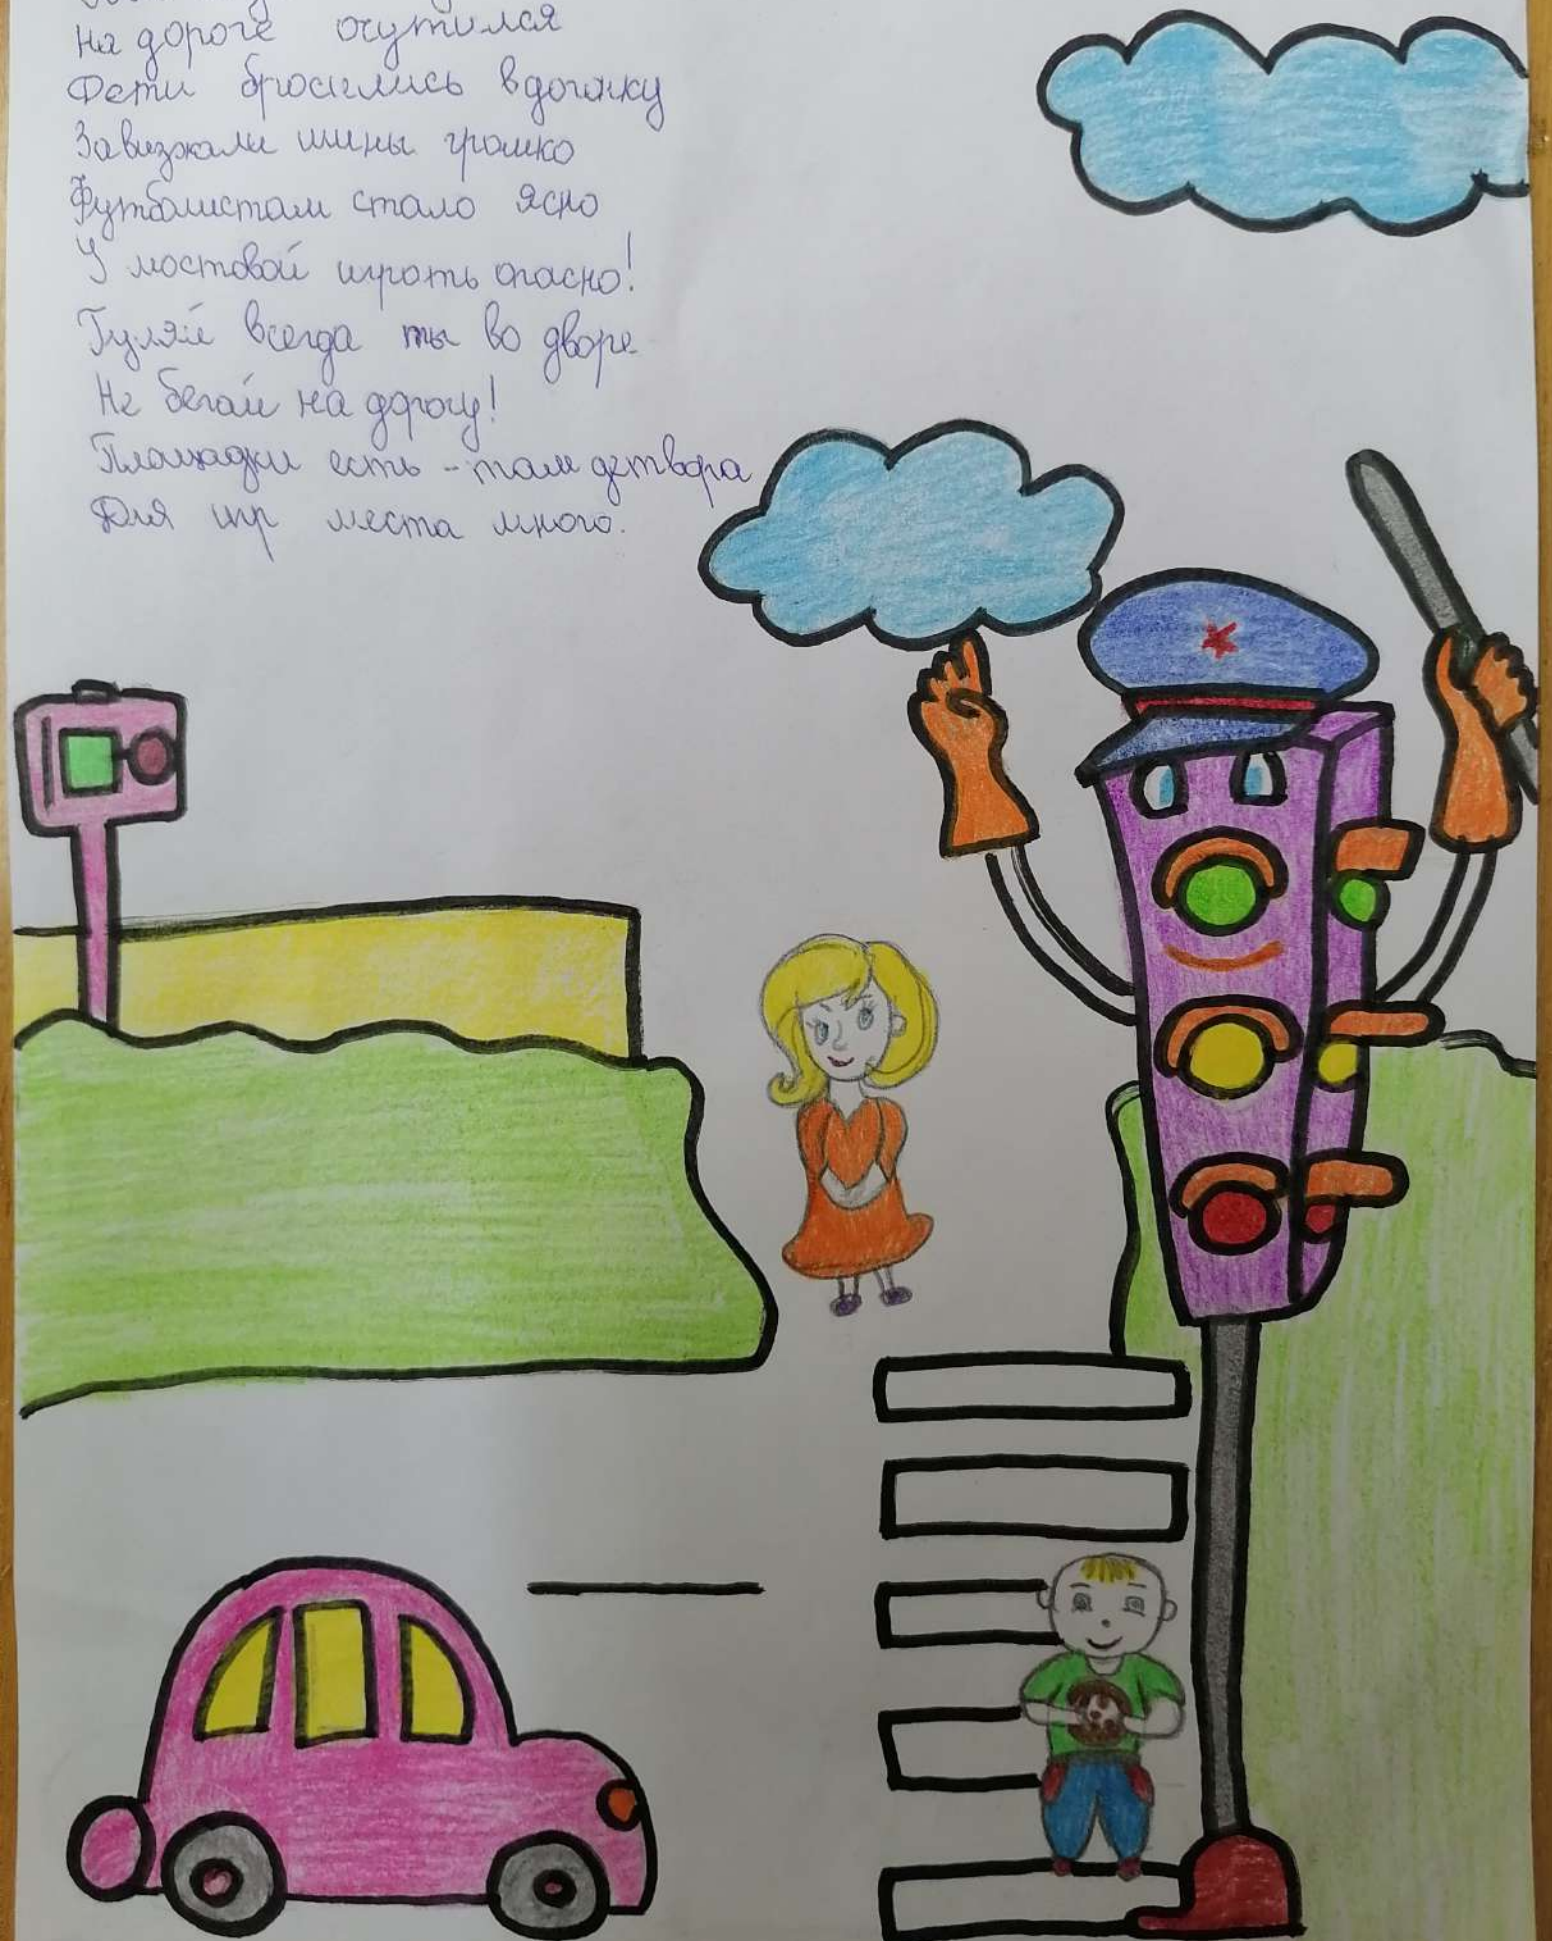 на дороге очутился
Дети бросились вдогонку
Завизжали шины громко
Футболистам стало ясно
У мостовой играть опасно!
Гуляй всегда ты во дворе
Не бегай на дорогу!
Площадки есть - там детвора
Для игр места много.